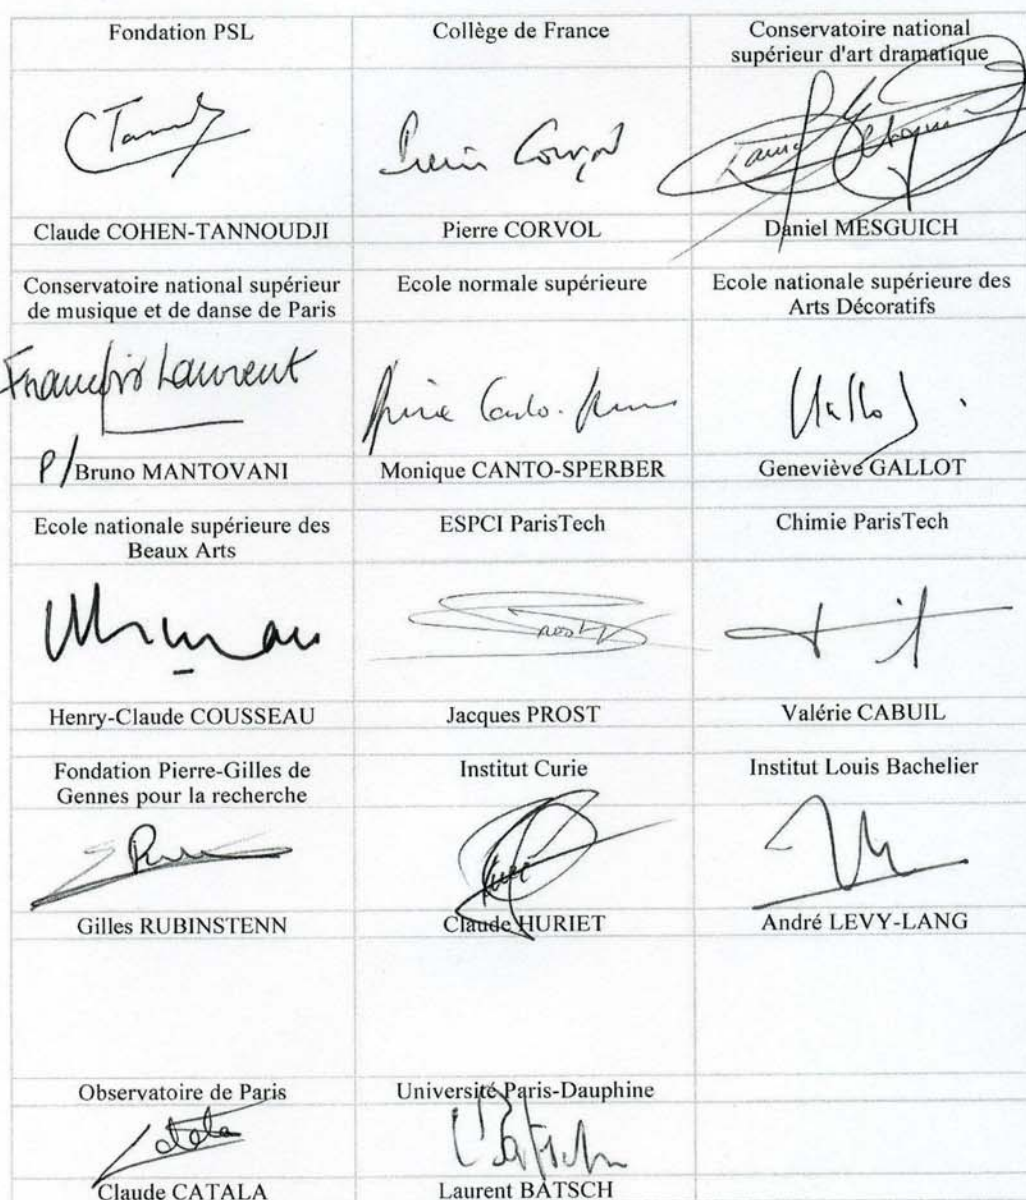 Fondation PSL
Collège de France
Conservatoire national
supérieur d'art dramatique
Claude COHEN-TANNOUDJI
Pierre CORVOL
Daniel MESGUICH
Conservatoire national supérieur
de musique et de danse de Paris
Ecole normale supérieure
Ecole nationale supérieure des
Arts Décoratifs
François Laurent
P/ Bruno MANTOVANI
Monique CANTO-SPERBER
Geneviève GALLOT
Ecole nationale supérieure des
Beaux Arts
ESPCI ParisTech
Chimie ParisTech
Henry-Claude COUSSEAU
Jacques PROST
Valérie CABUIL
Fondation Pierre-Gilles de
Gennes pour la recherche
Institut Curie
Institut Louis Bachelier
Gilles RUBINSTENN
Claude HURIET
André LEVY-LANG
Observatoire de Paris
Université Paris-Dauphine
Claude CATALA
Laurent BATSCH